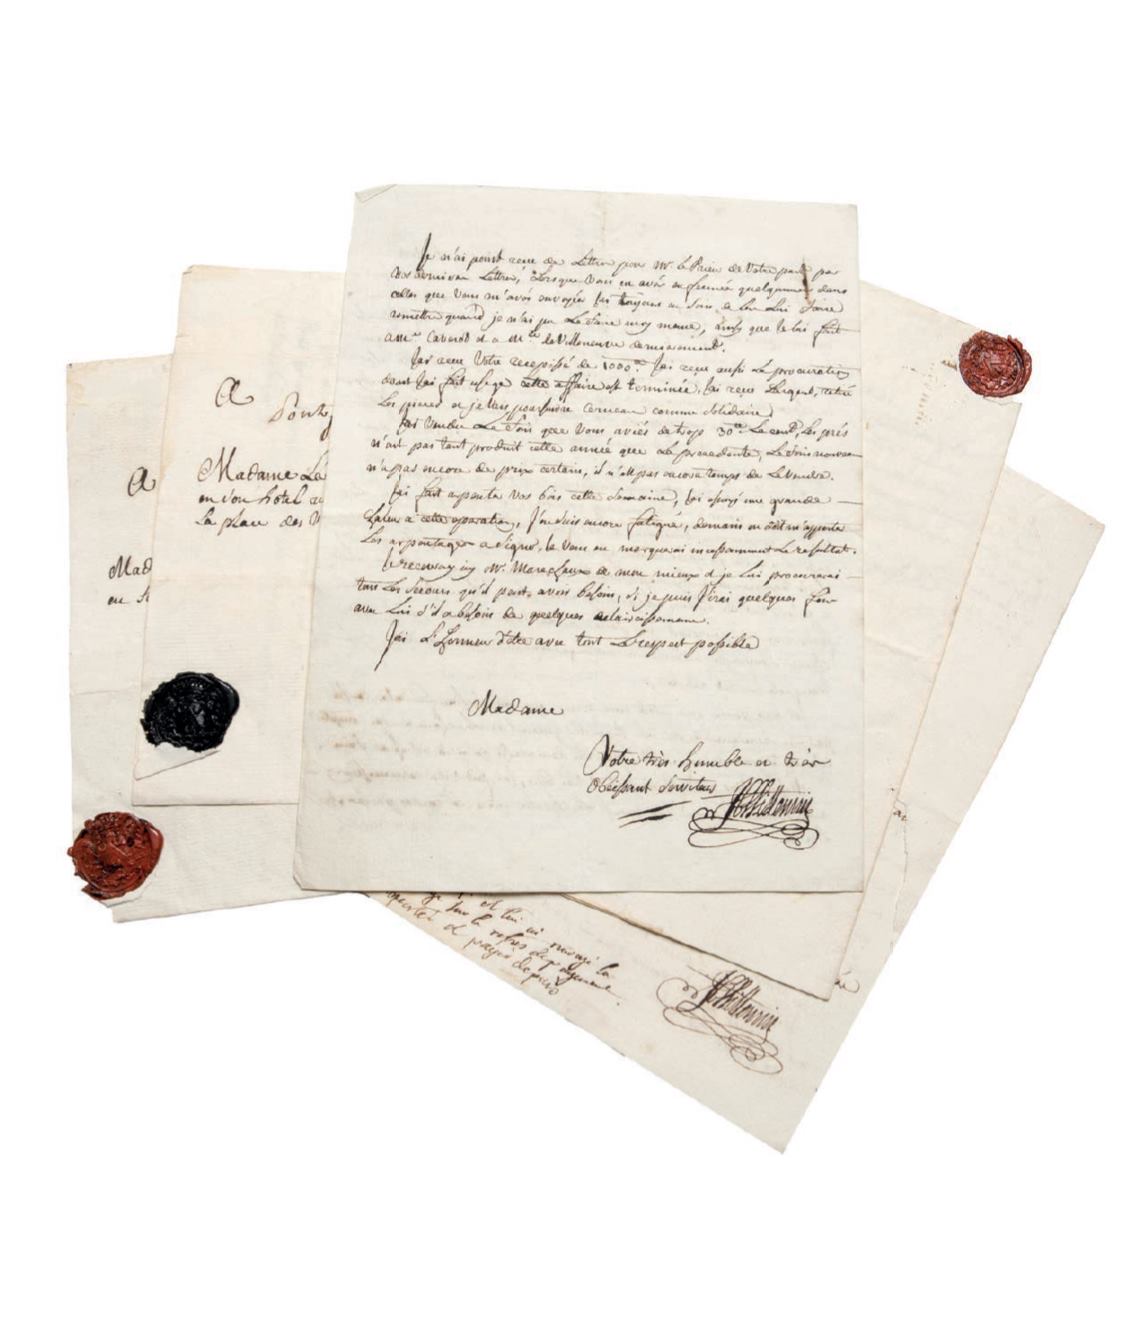 Je n'ai point recu de Lettre pour Mr. le Prieu de Votre part par
Vos dernieres Lettres, Lorsque Vous en avés enfermée quelqu'unes dans
celles que Vous m'avés envoyées J'ai toujours eu soin de les Lui faire
remettre quand je n'ai pu Le faire moy meme, ainsy que Je lai fait
a Mr. Caverod et a Mde. de Villeneuve dernierement.
J'ai recu Votre recepissé de 1000. J'ai recu aussi La procuration
dont J'ai fait usage cette affaire est terminée. J'ai recu Largent, retiré
Les pieces et je Vais poursuivre Cerneau comme Solidaire
J'ai Vendu Le foin que Vous aviés de trop 30 Le cent, Les prés
n'ont pas tant produit cette année que La precedente, Le foin nouveau
n'a pas encore de prix certain, il n'est pas encore temps de Le Vendre.
J'ai fait arpenter Vos bois cette Semaine, J'ai essuyé une grande
chaleur a cette operation, J'en suis encore fatigué, demain on doit m'apporter
Les arpentages a Signer, Je Vous en marquerai incessamment Le resultat.
Je recevray Mr. Marechaux de mon mieux et je Lui procurerai
tous Les Secours qu'il peut avoir besoin, Si je puis J'irai quelques fois
avec Lui s'il a besoin de quelques eclaircissemens.
J'ai L'honneur d'etre avec tout Le respect possible
Madame
Votre très humble et très
Obeissant Serviteur
A
Pont
Madame La
en Son hotel
La place des V
A
Mad
en S
et lui ai envoyé la
Sur le refus de payement